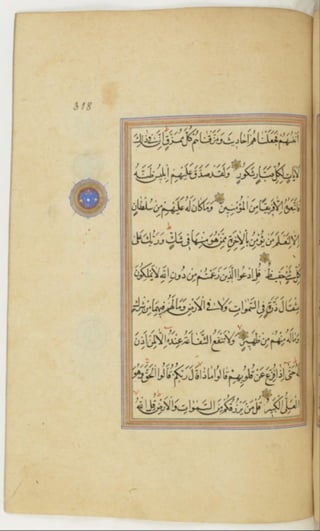 318
أنفسهم فجعلناهم أحاديث ومزقناهم كل ممزق إن في ذلك
لآيات لكل صبار شكور ولقد صدق عليهم إبليس ظنه
فاتبعوه إلا فريقا من المؤمنين وما كان له عليهم من سلطان
إلا لنعلم من يؤمن بالآخرة ممن هو منها في شك وربك على
كل شيء حفيظ قل ادعوا الذين زعمتم من دون الله لا يملكون
مثقال ذرة في السموات ولا في الأرض وما لهم فيهما من شرك
وما له منهم من ظهير ولا تنفع الشفاعة عنده إلا لمن أذن
له حتى إذا فزع عن قلوبهم قالوا ماذا قال ربكم قالوا الحق وهو
العلي الكبير قل من يرزقكم من السموات والأرض قل الله